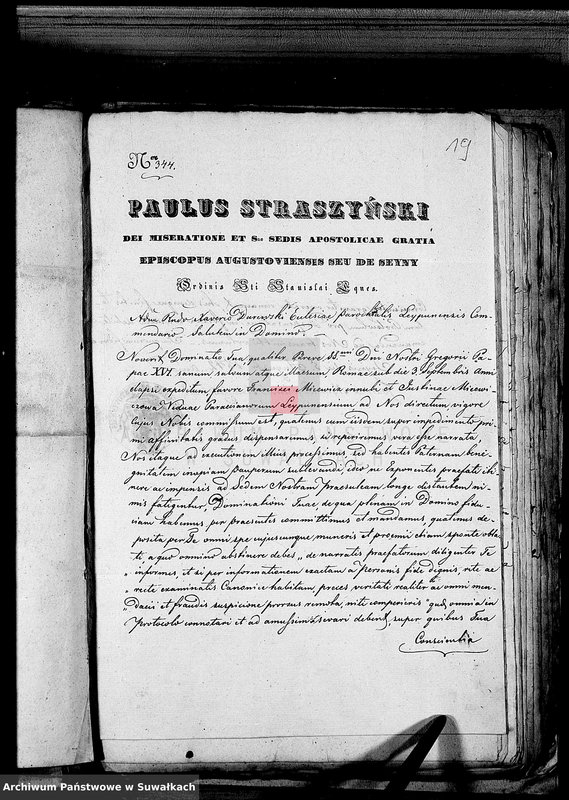 19
Nro 344.
PAULUS STRASZYŃSKI
DEI MISERATIONE ET Sae SEDIS APOSTOLICAE GRATIA
EPISCOPUS AUGUSTOVIENSIS SEU DE SEYNY
Ordinis Sti Stanislai Eques.
Adm Rndo Xaverio Ecclesiae Parochialis Leypunensis Com-
mendario, Salutem in Domino.
Noverit Dominatio Tua, qualiter Breve SSmi Dni Nostri Gregorii Pa-
pae XVI. sanum salvum atque illaesum, Romae sub die 3 Septembris Anni
elapsi expeditum favore Francisci Micewicz innubi et Justinae Micewi-
czowa Viduae Paraecianorum Leypunensium ad Nos directum, vigore
cujus Nobis commissum est, quatenus cum iisdem super impedimento pri-
mi affinitatis gradus dispensaremus, si repererimus vera esse narrata,
Nos itaque ad executionem illius processimus, sed habentes Paternam beni-
gnitatem inopiam pauperum sublevandi, ideo ne Exponentes praefati iti-
nere ac impensis ad Sedem Nostram Praesuleam longe distantem ni-
mis fatigentur, Dominationi Tuae, de qua plenam in Domino fidu-
ciam habemus, per praesentes committimus et mandamus, quatenus de-
posita per Te omni spe cujuscunque muneris et praemii etiam sponte obla-
ti, a quo omnino abstinere debes, de narratis praefatorum diligenter Te
informes, et si per informationem exactam a personis fide dignis, rite ac
recte examinatis Canonice habitam, preces veritati realiter ac omni men-
dacii et fraudis suspicione prorsus remota, niti compereris quod omnia in
Protocolo connotari et ad amussim servari debent, super quibus Tua
Conscientia
Archiwum Państwowe w Suwałkach